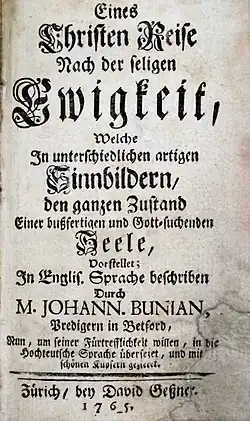 Eines
Christen Reise
Nach der seligen
Ewigkeit,
Welche
In unterschiedlichen artigen
Sinnbildern,
den ganzen Zustand
Einer bußfertigen und Gott-suchenden
Seele,
Vorstellet;
In Englis. Sprache beschriben
Durch
M. JOHANN. BUNIAN,
Predigern in Betford,
Nun, um seiner Fürtrefflichkeit willen, in die
Hochteutsche Sprache übersezet, und mit
schönen Kupfern gezieret.
Zürich, bey David Geßner
1765.